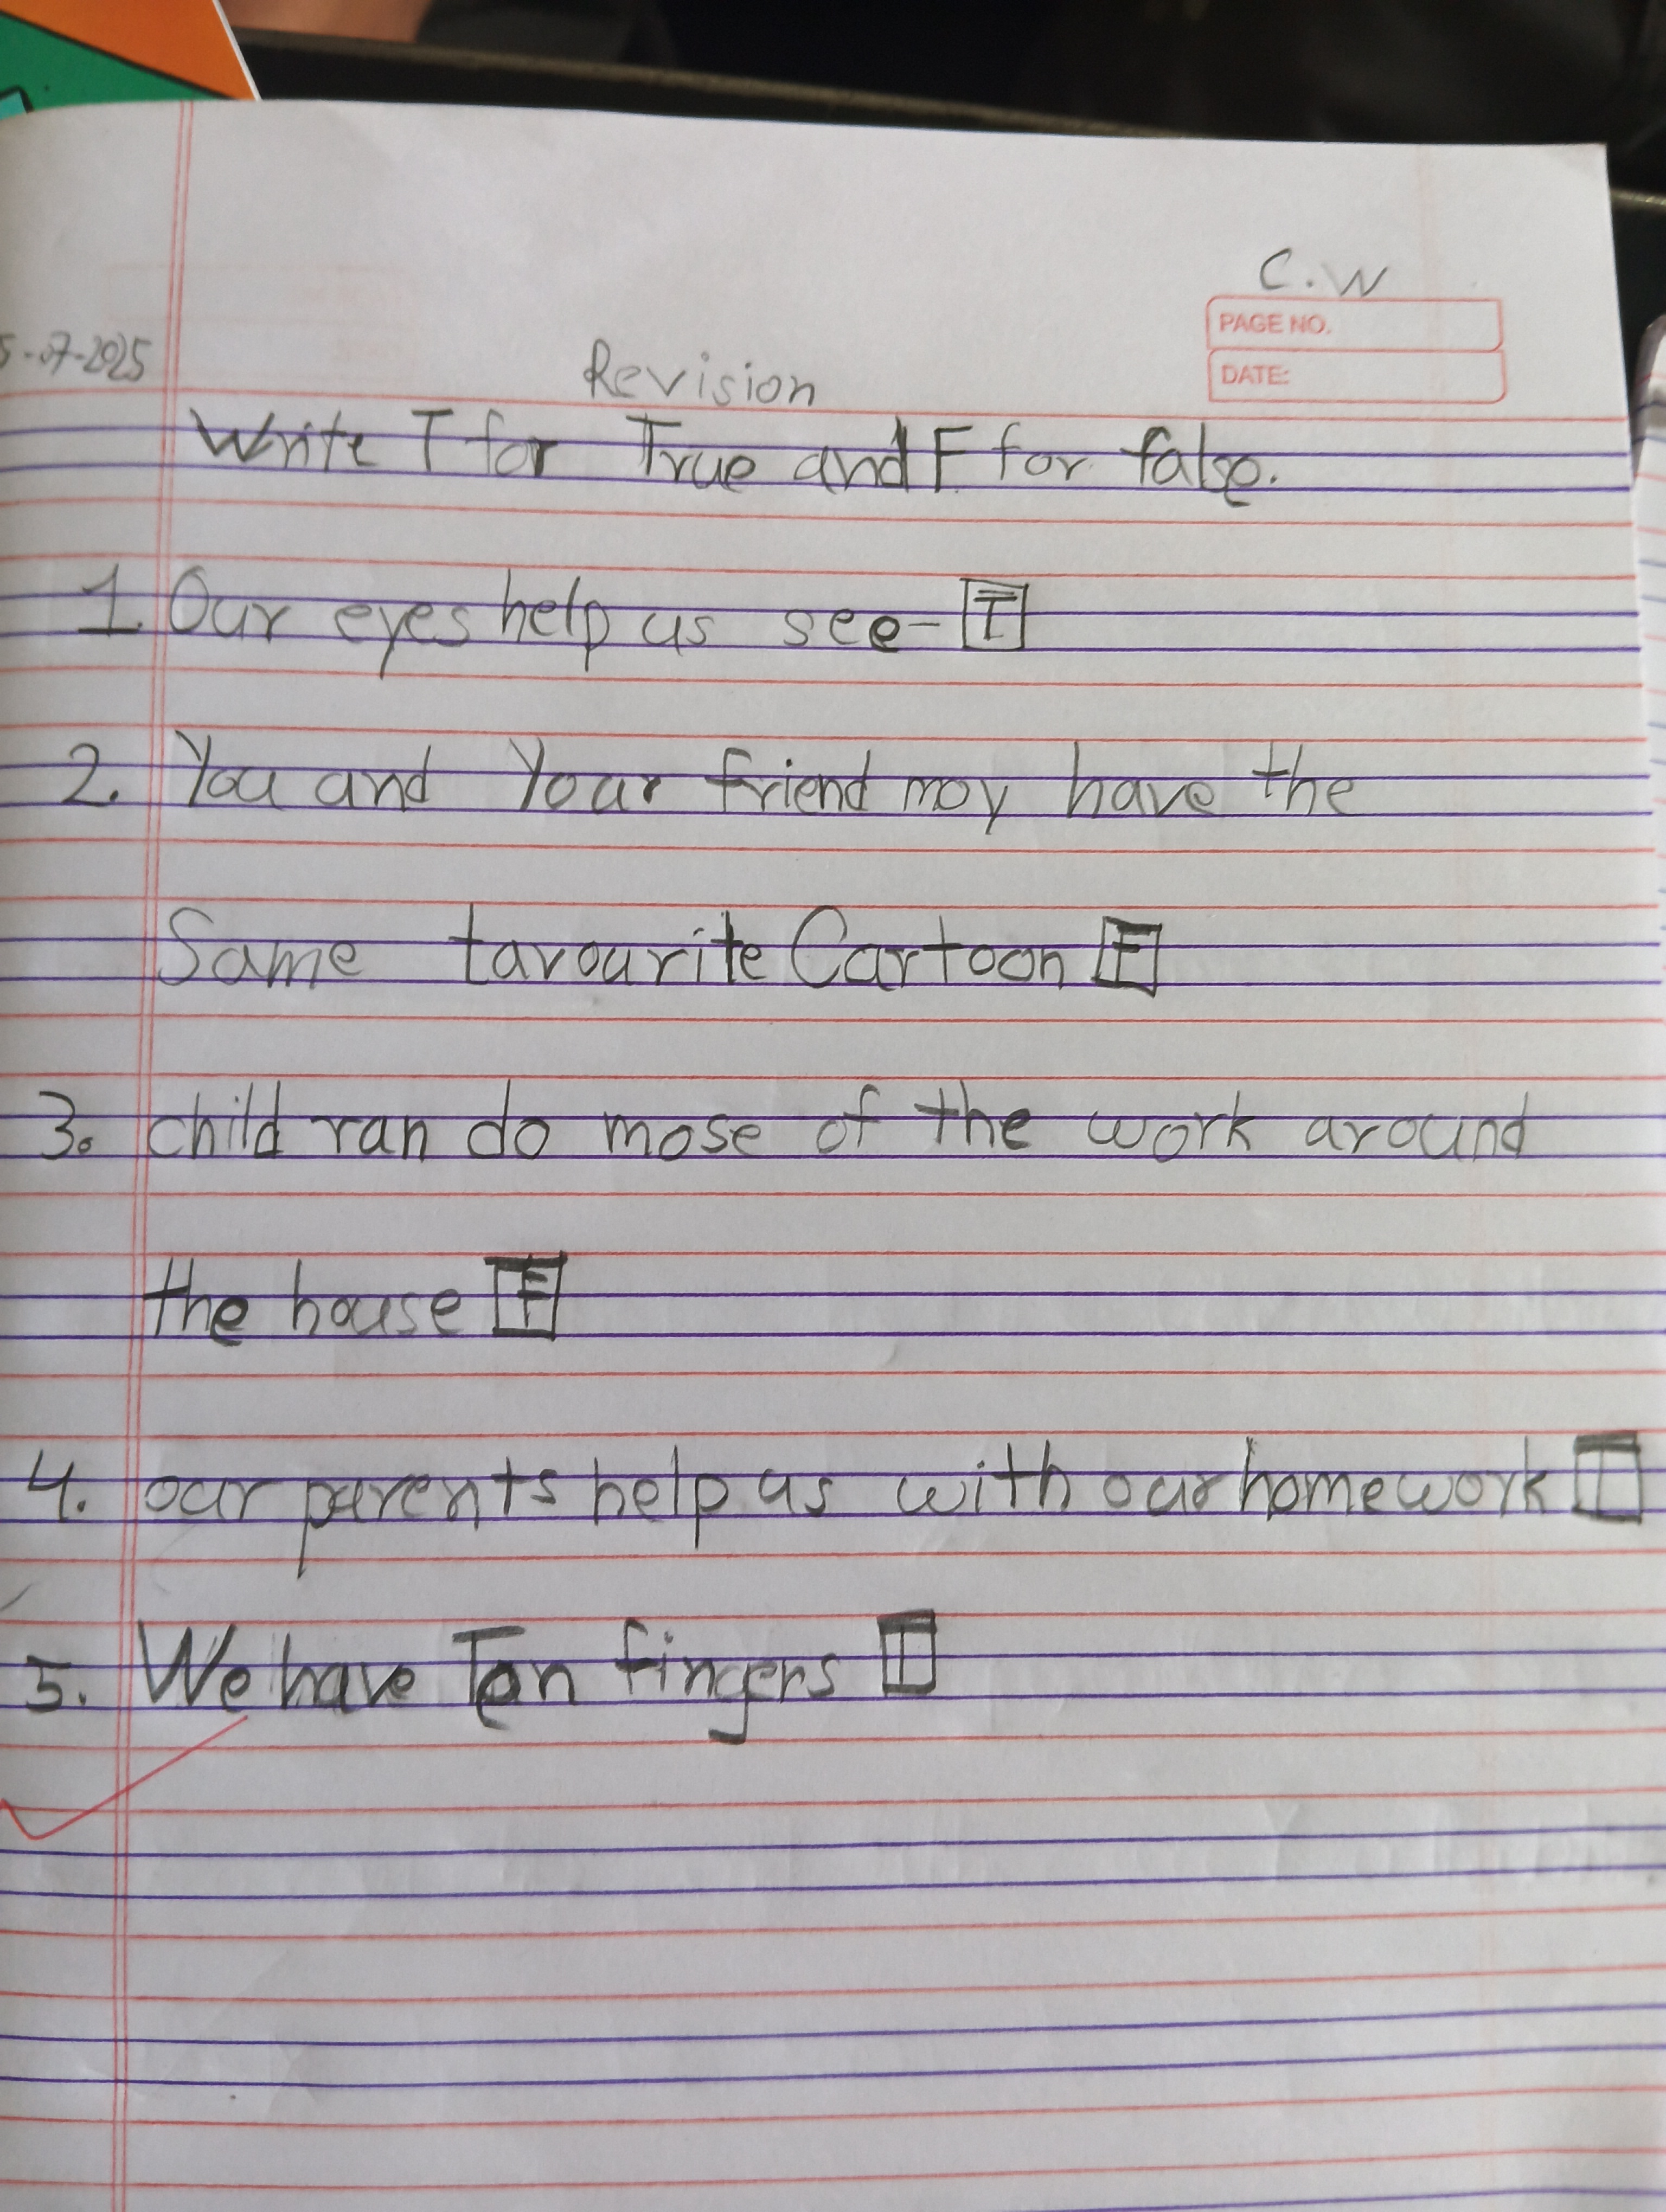 C.W
PAGE NO.
DATE:
5-07-2025
Revision
Write T for True and F for false.
1. Our eyes help us see- T
2. You and Your friend may have the
Same favourite Cartoon F
3. child ran do mose of the work around
the house F
4. our parents help us with our homework T
5. We have Ten fingers T